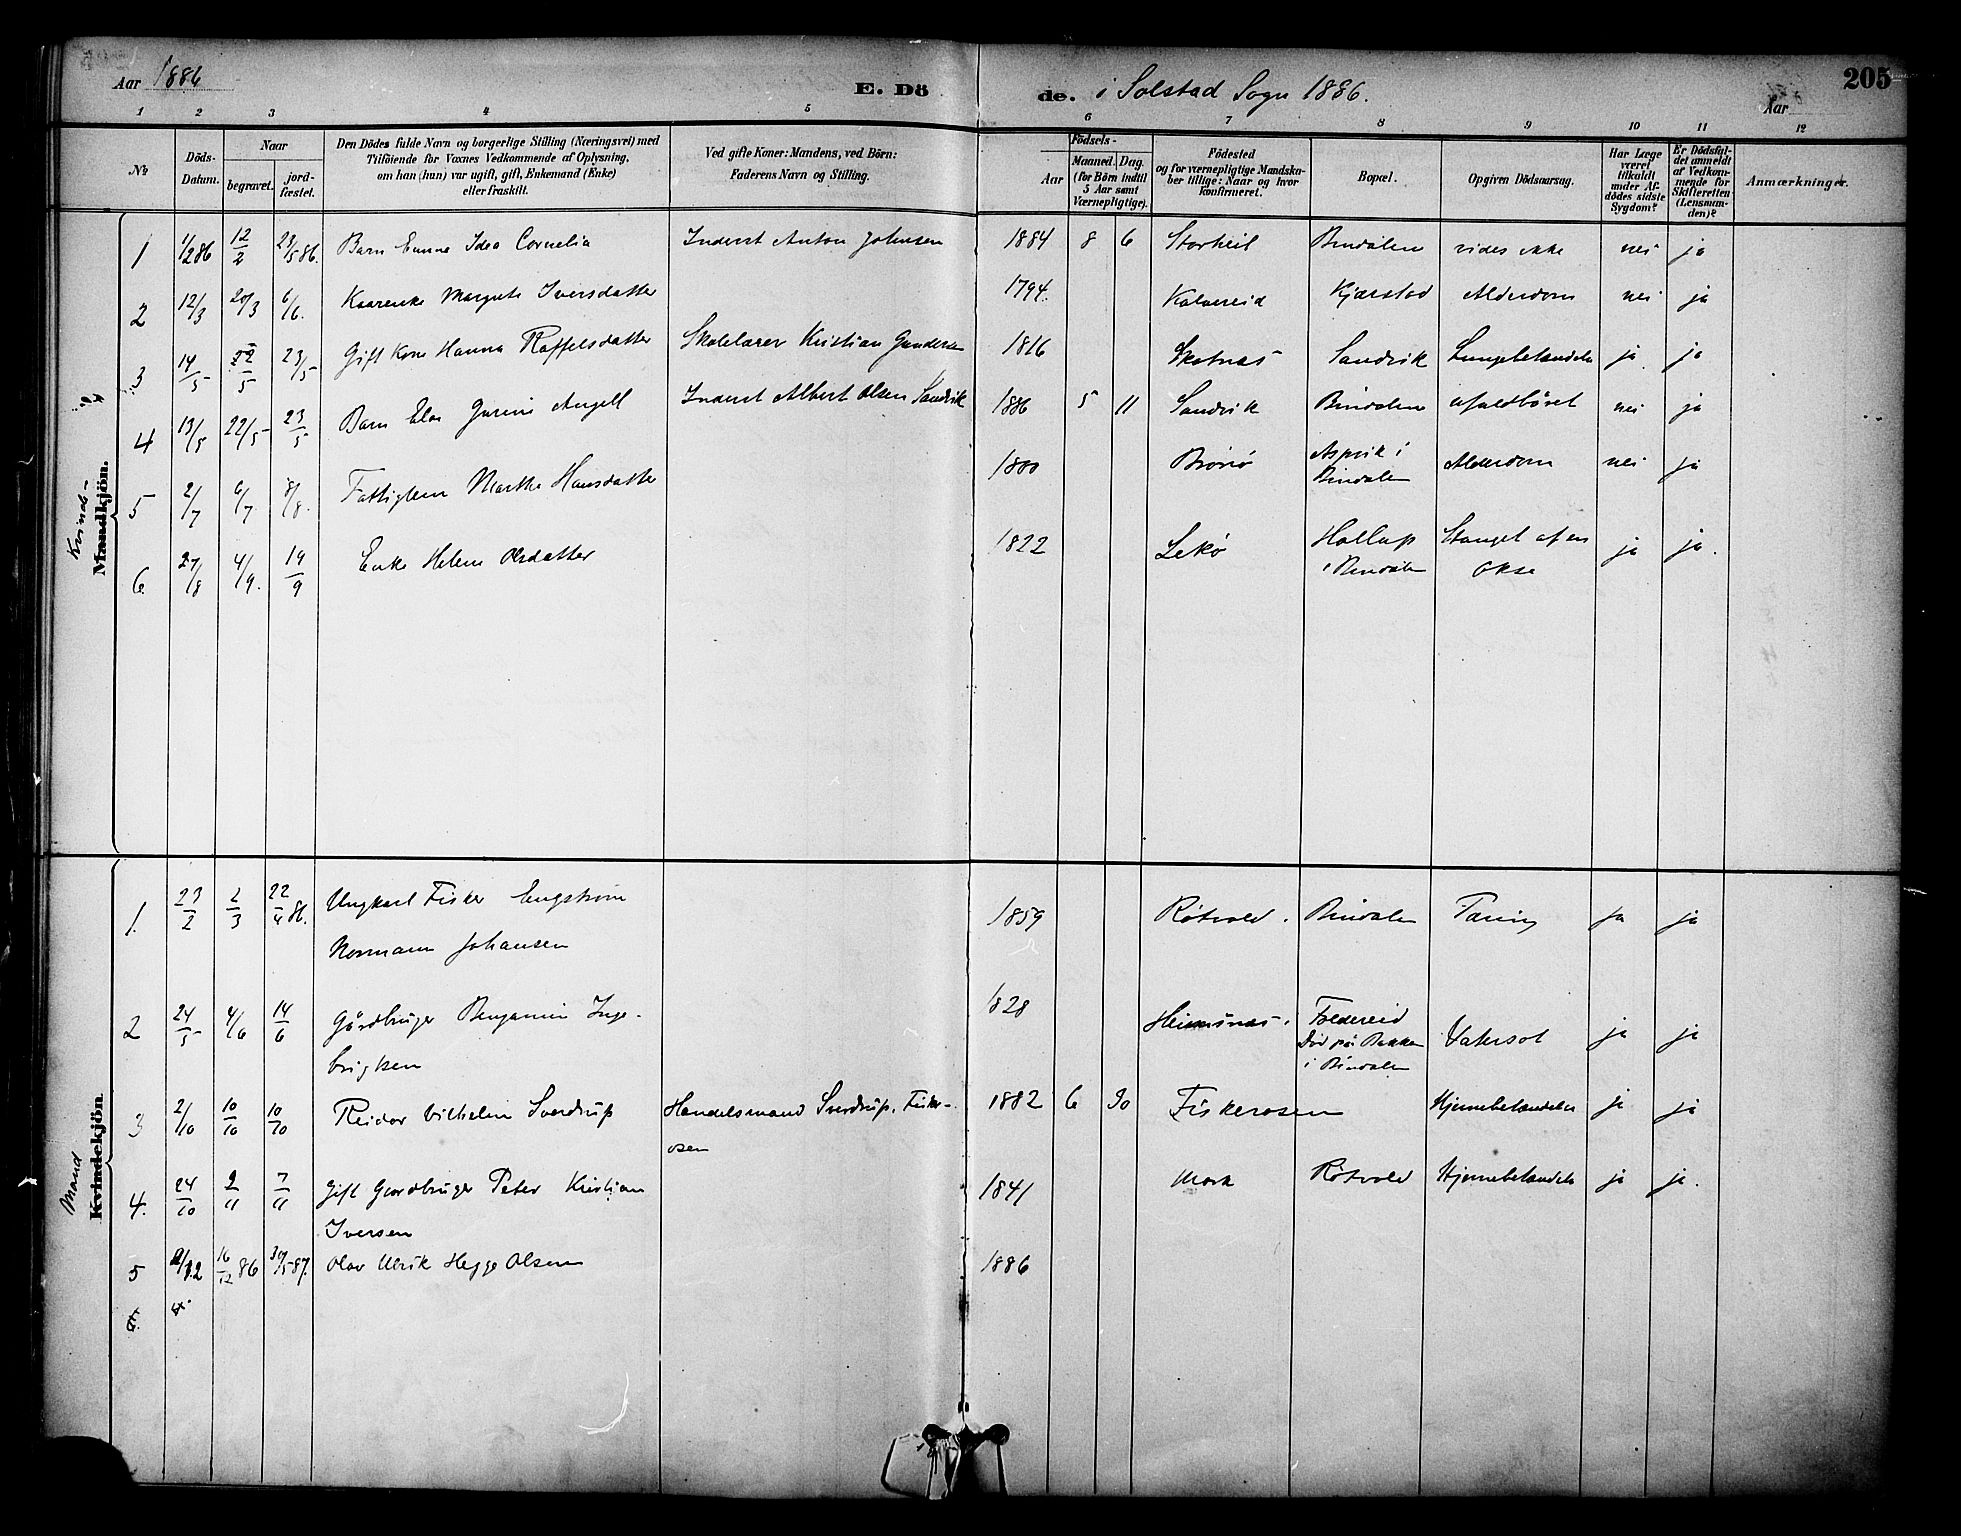 Aar 1886
E. Dö
de. i Solstad Sogn 1886.
Aar
205
1 2 3 4 5 6 7 8 9 10 11 12
No.
Döds-Datum.
Naar
begravet.
jord-fæstet.
Den Dödes fulde Navn og borgerlige Stilling (Næringsvei) med
Tilföiende for Voxnes Vedkommende af Oplysning,
om han (hun) var ugift, gift, Enkemand (Enke)
eller fraskilt.
Ved gifte Koner: Mandens, ved Börn:
Faderens Navn og Stilling.
Födsels-
Aar
Maaned. Dag.
(for Börn indtil
5 Aar samt
Værnepligtige).
Födested
og for værnepligtige Mandska-
ber tillige: Naar og hvor
konfirmeret.
Bopæl.
Opgiven Dödsaarsag.
Har Læge
været
tilkaldt
under Af-
dödes sidste
Sygdom?
Er Dödsfal-
det anmeldt
af Vedkom-
mende for
Skifteretten
(Lensman-
den)?
Anmærkninger.
Kvinde-
Mandkjön.
1 1/2 86 12/2 23/5 86. Barn Emma Idea Cornelia Inderst Anton Johnsen 1884 8 6 Storheil Bindalen vides ikke nei ja
2 12/3 20/3 6/6. Kaarenke Margrete Iversdatter 1794. Kalvereid Kjærstad Alderdom nei ja
3 14/5 22/5 23/5 Gift Kone Hanna Raffelsdatter Skolelærer Kristian Gundersen 1816 Skotnæs Sandvik Lungebetændelse ja ja
4 13/5 22/5 23/5 Barn Elen Gurine Angell Inderst Albert Olsen Sandvik 1886 5 11 Sandvik Bindalen nei ja
5 2/7 6/7 8/8. Fattiglem Marthe Hansdatter 1800 Brönö Aspvik i
Bindalen Alderdom nei ja
6. 27/8 4/9. 19/9 Enke Helene Olsdatter 1822 Lekø Hollup
i Bindalen Stanget af en
Okse ja ja.
Mand
Kvindekjön
1. 23/2 2/3 22/4 86. Ungkarl Fisker Engstrøm
Normann Johansen 1859 Røtvold. Bindalen Tæring ja ja
2 24/5 4/6 14/6 Gårdbruger Benjamin Inge-
brigtsen 1828 Heimsnæs Foldereid
Död på Bakken
i Bindalen Vatersot ja ja
3 2/10 10/10 10/10 Reidar Vilhelm Sverdrup Handelsmand Sverdrup, Fisker-
osen 1882 6 30 Fiskerosen Hjernebetændelse ja ja
4. 24/10 2/11 7/11 Gift Gaardbruger Peter Kristian
Iversen 1841 Mork Røtvold Hjernebetændelse ja ja.
5 /12 16/12 86 30/5 87. Olav Ulrik Hegge Olsen 1886
6.